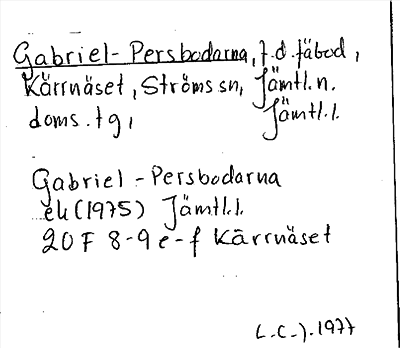 Gabriel-Persbodarna, f.d. fäbod,
Kärrnäset, Ströms sn, Jämtl. n.
doms. tg, Jämtl. l.
Gabriel-Persbodarna
ek (1975) Jämtl. l.
20 F 8-9 e-f Kärrnäset
1977